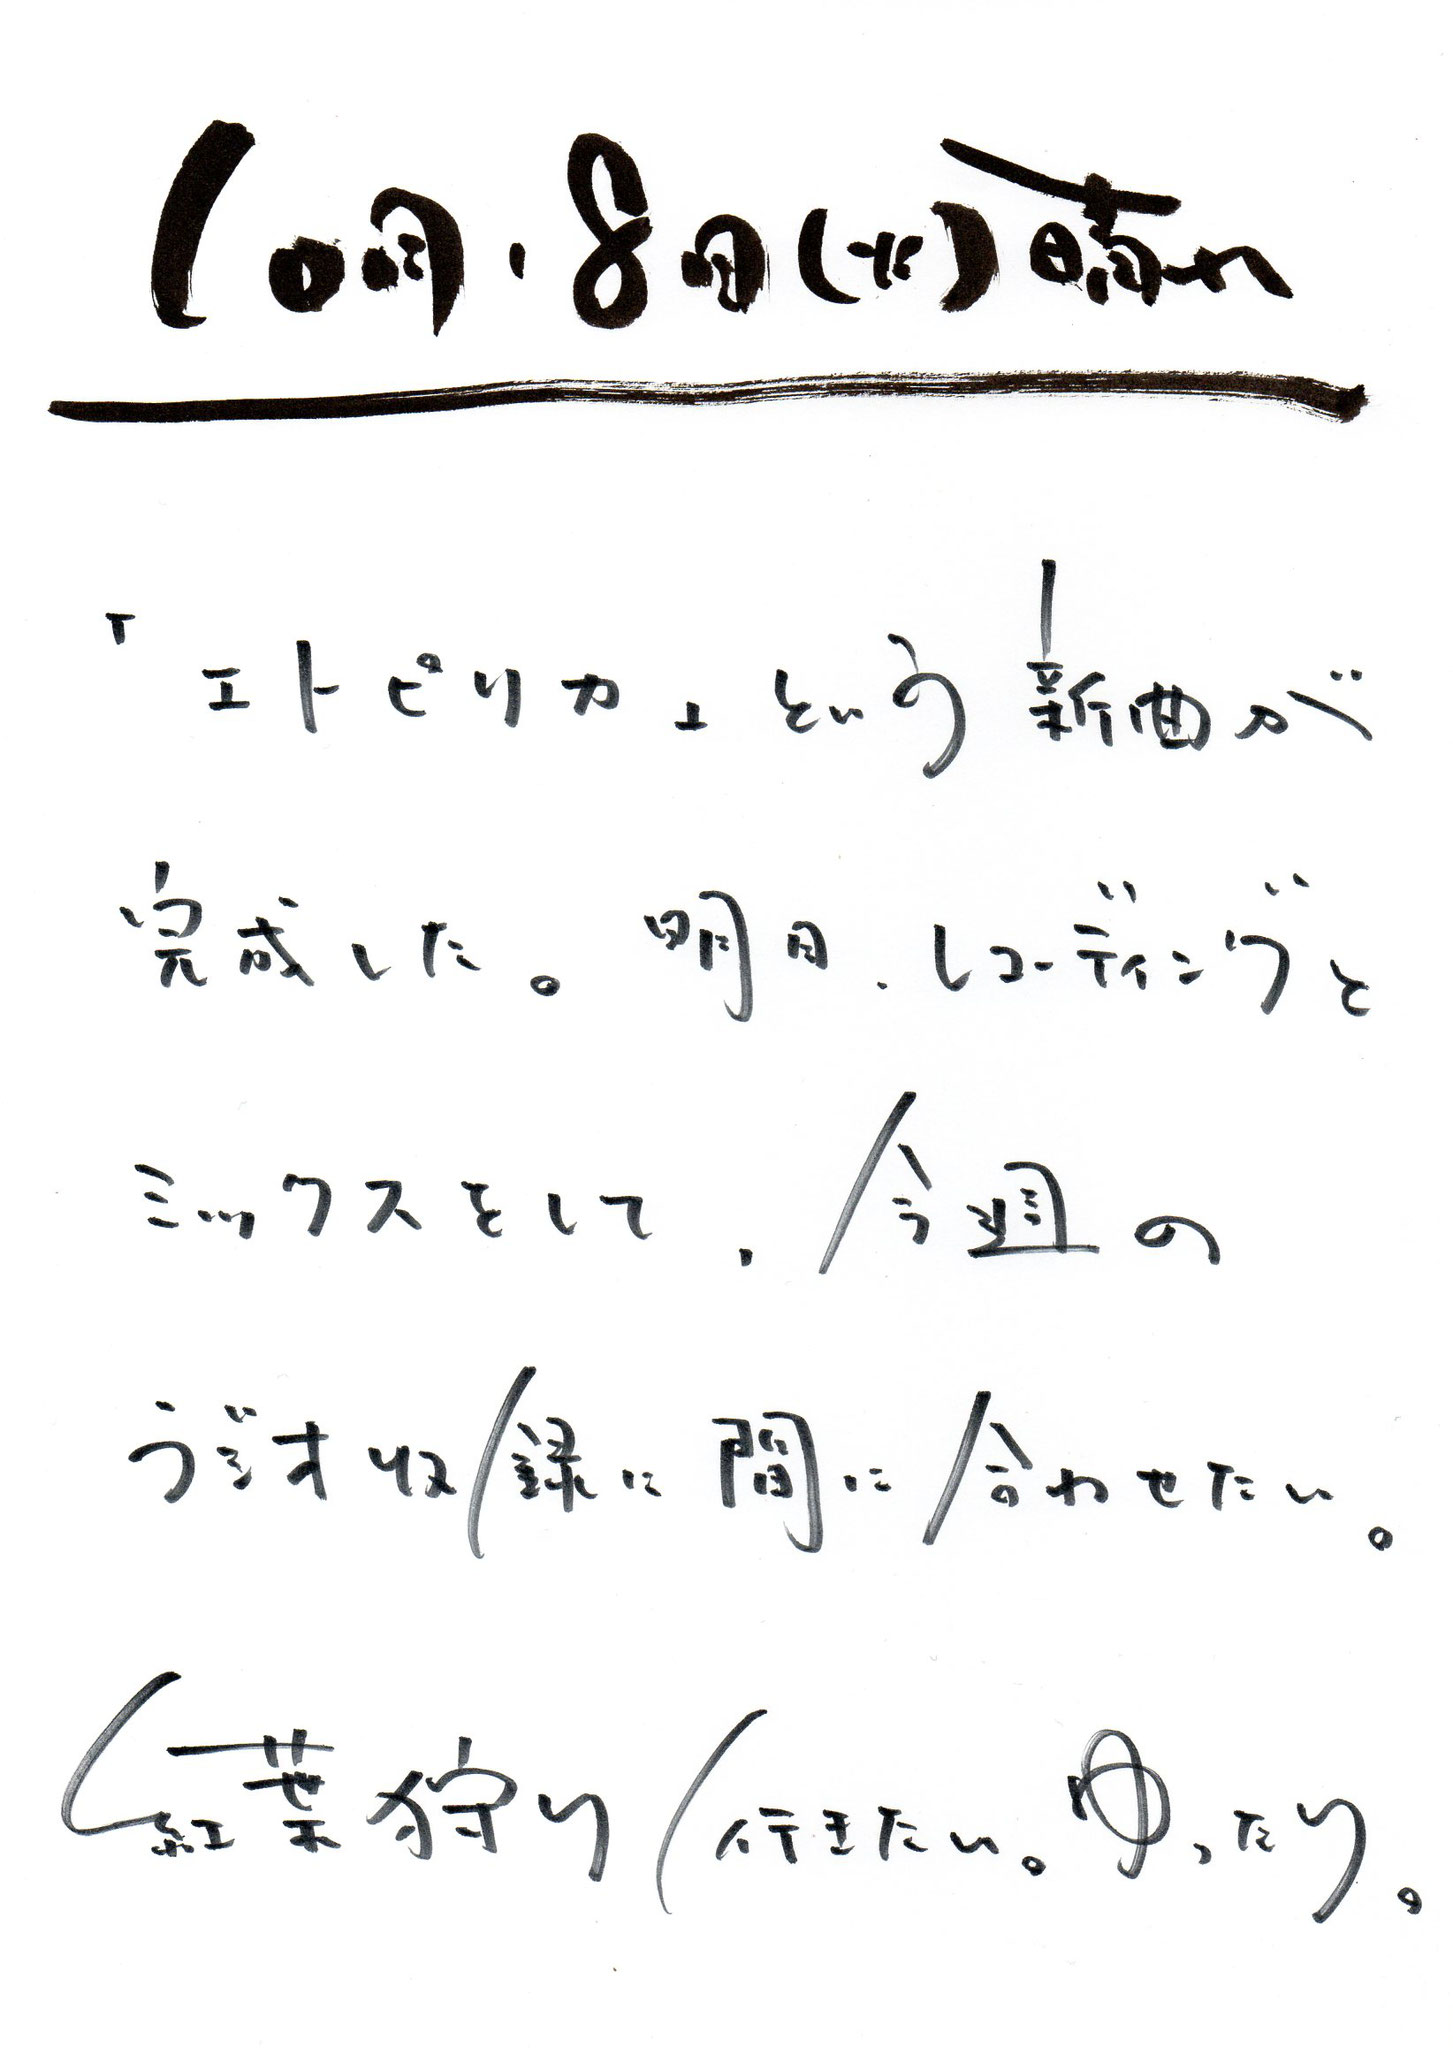 10月・8日(火)晴れ
「エトピリカ」という新曲が
完成した。明日、レコーディングと
ミックスをして、今週の
ラジオ収録に間に合わせたい。
紅葉狩り行きたい。ゆったり。